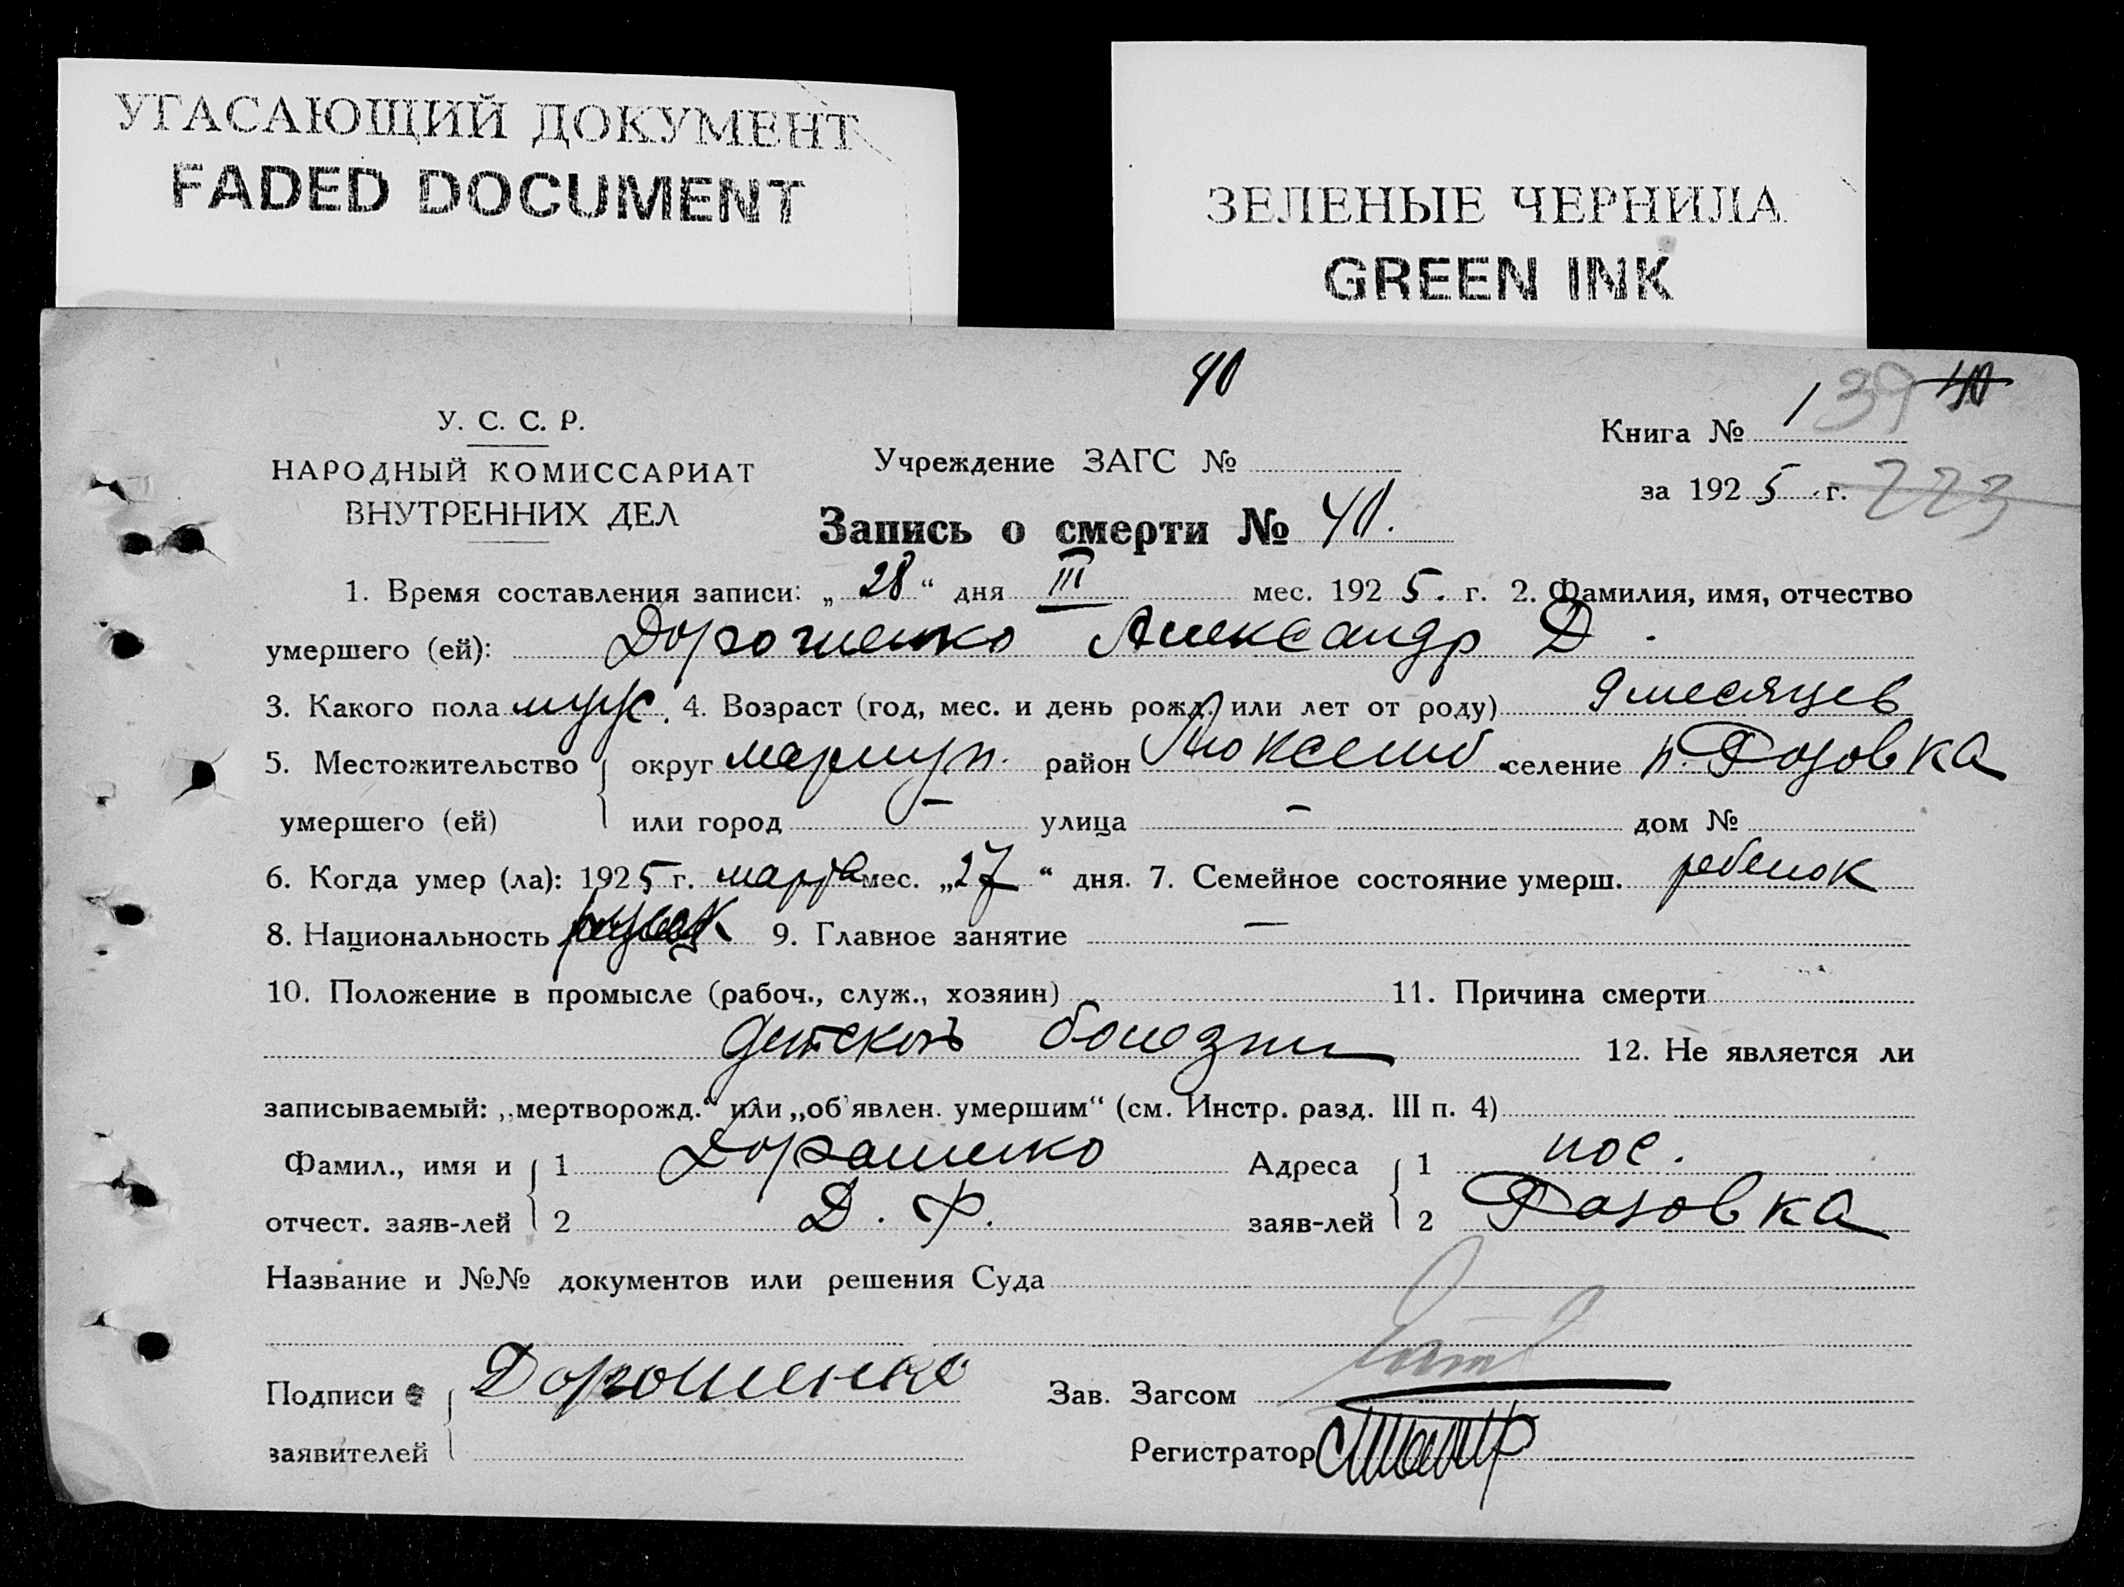 УГАСАЮЩИЙ ДОКУМЕНТ
FADED DOCUMENT
ЗЕЛЕНЫЕ ЧЕРНИЛА
GREEN INK
40
1 39 40
У. С. С. Р.
НАРОДНЫЙ КОМИССАРИАТ
ВНУТРЕННИХ ДЕЛ
Учреждение ЗАГС №
Книга №
за 1925 г. 223
Запись о смерти № 40.
1. Время составления записи: „28“ дня III мес. 1925. г. 2. Фамилия, имя, отчество
умершего (ей): Дорошенко Александр Д.
3. Какого пола муж. 4. Возраст (год, мес. и день рожд. или лет от роду) 9 месяцев
5. Местожительство округ мариуп. район селение п. Розовка
умершего (ей) или город – улица – дом №
6. Когда умер (ла): 1925 г. марта мес. „27“ дня. 7. Семейное состояние умерш. ребенок
8. Национальность 9. Главное занятие –
10. Положение в промысле (рабоч., служ., хозяин) 11. Причина смерти
детской болезни 12. Не является ли
записываемый: „мертворожд.“ или „об'явлен. умершим“ (см. Инстр. разд. III п. 4)
Фамил., имя и 1 Дорошенко Адреса 1 пос.
отчест. заяв-лей 2 Д. Ф. заяв-лей 2 Розовка
Название и №№ документов или решения Суда
Подписи Дорошенко Зав. Загсом
заявителей Регистратор